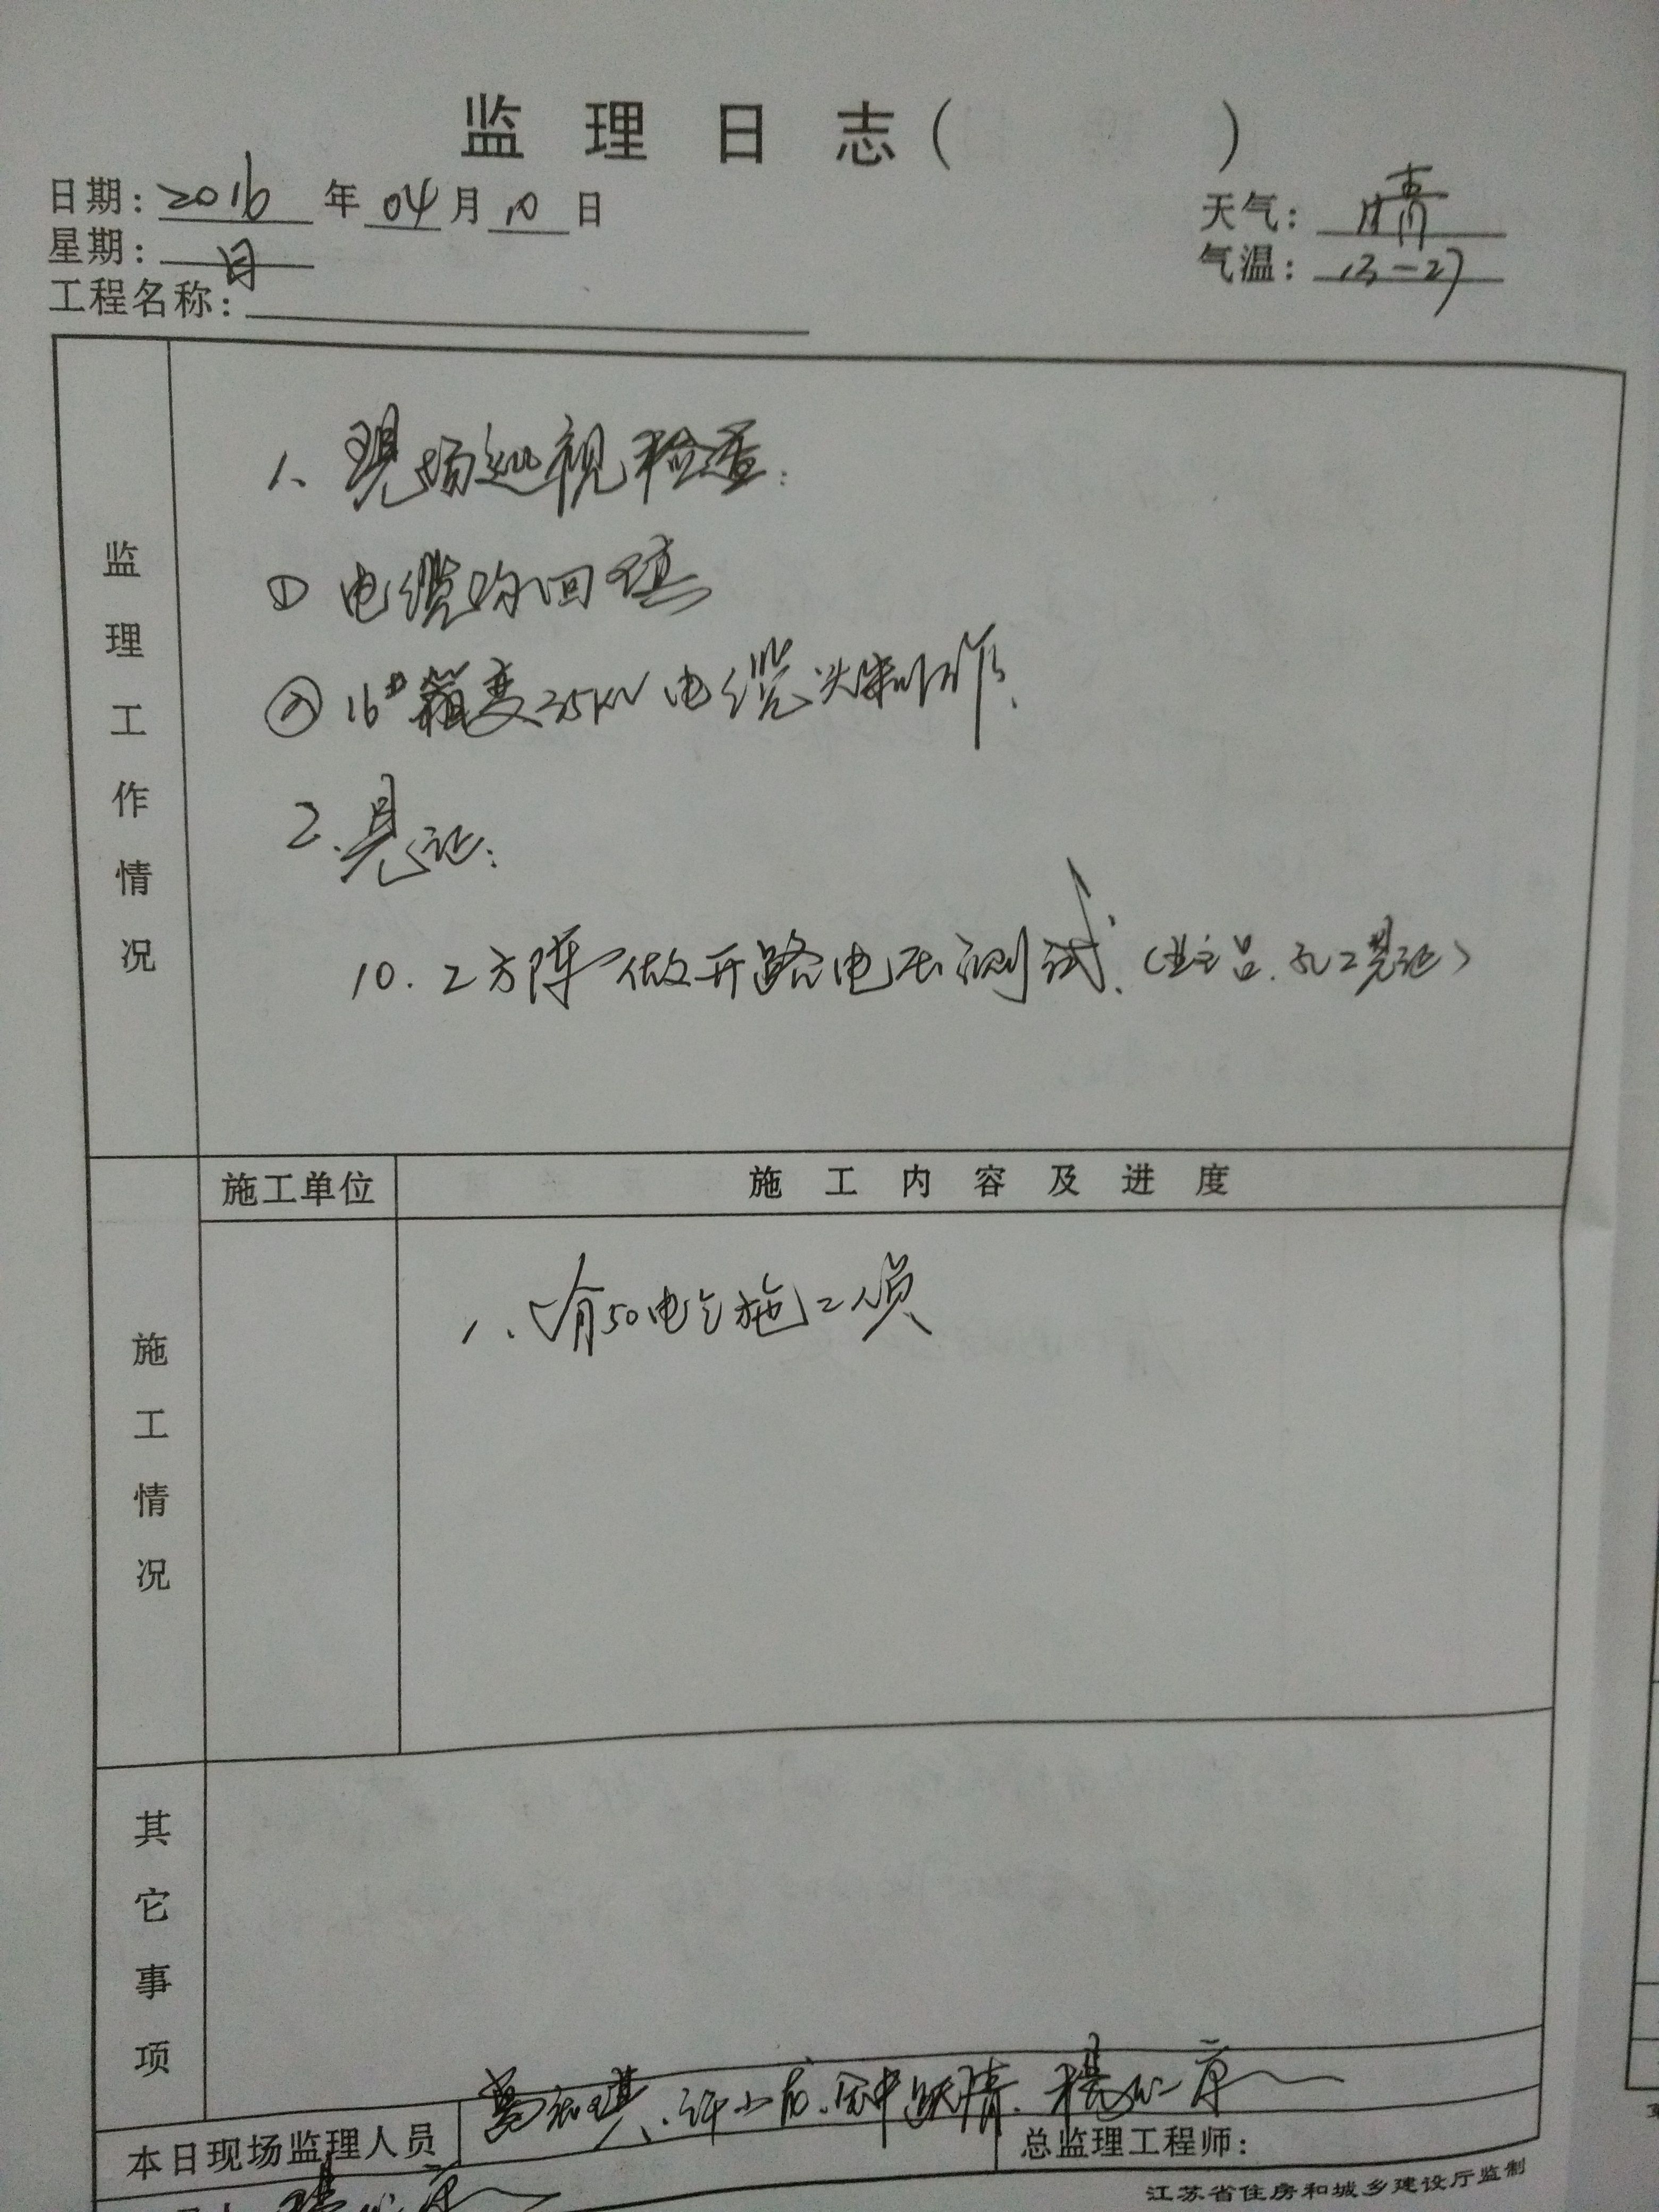 监理日志（ ）
日期：2016年04月10日
天气：晴
星期：日
气温：13-27
工程名称：
监理工作情况
1、现场巡视检查：
① 电缆沟回填
② 16#箱变35KV电缆头制作、
2、见证：
10.2方阵做开路电压测试、（业主吕、
施工单位
施工内容及进度
施工情况
1、只有50电气施工人员
其它事项
本日现场监理人员
许小
总监理工程师：
江苏省住房和城乡建设厅监制